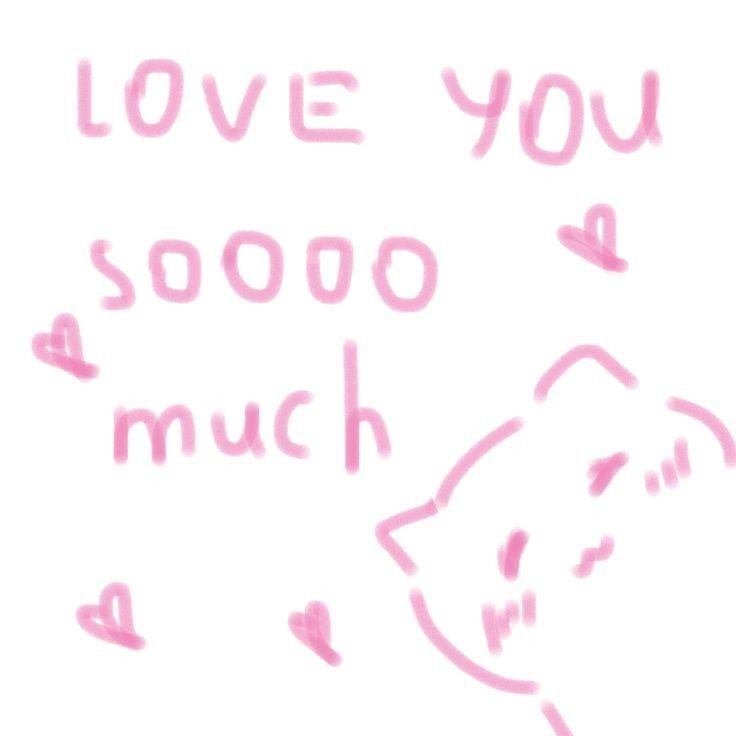 LOVE YOU
SOOOO
much